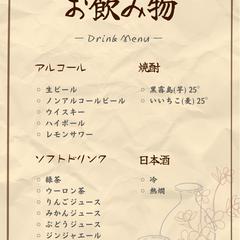 お飲み物
― Drink Menu ―
アルコール
○ 生ビール
○ ノンアルコールビール
○ ウイスキー
○ ハイボール
○ レモンサワー
焼酎
○ 黒霧島(芋) 25°
○ いいちこ(麦) 25°
ソフトドリンク
○ 緑茶
○ ウーロン茶
○ りんごジュース
○ みかんジュース
○ ぶどうジュース
○ ジンジャエール
日本酒
○ 冷
○ 熱燗